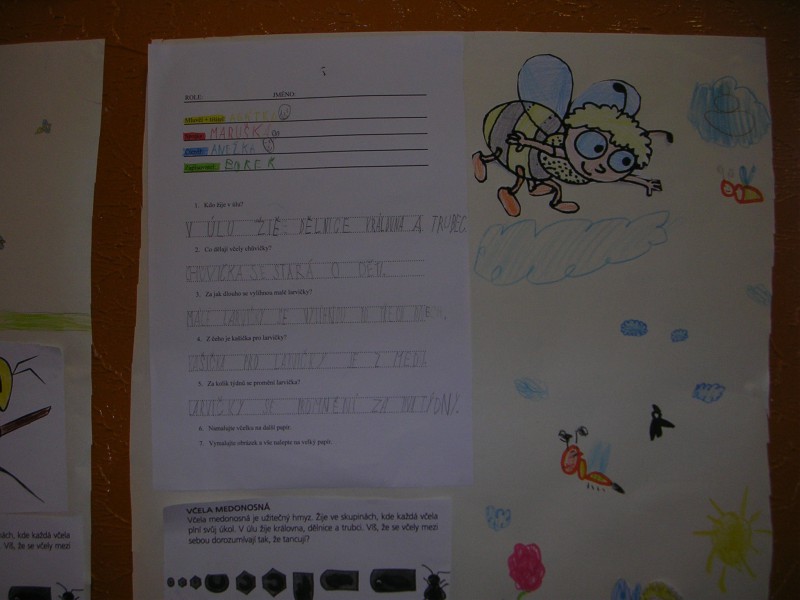 ROLE: JMÉNO:
MARUŠKA
ANEŽKA
BOREK
1. Kdo žije v úlu?
V ÚLU ŽIJE: DĚLNICE KRÁLOVNA A TRUBEC.
2. Co dělají včely chůvičky?
CHŮVIČKA SE STARÁ O DĚTI.
3. Za jak dlouho se vylíhnou malé larvičky?
MALÉ LARVIČKY SE VYLÍHNOU
4. Z čeho je kašička pro larvičky?
KAŠIČKA PRO LARVIČKY JE Z MEDU.
5. Za kolik týdnů se promění larvička?
LARVIČKY SE ZA
6. Namalujte včelku na další papír.
7. Vymalujte obrázek a vše nalepte na velký papír.
VČELA MEDONOSNÁ
Včela medonosná je užitečný hmyz. Žije ve skupinách, kde každá včela
plní svůj úkol. V úlu žije královna, dělnice a trubci. Víš, že se včely mezi
sebou dorozumívají tak, že tancují?
nách, kde každá včela
Víš, že se včely mezi